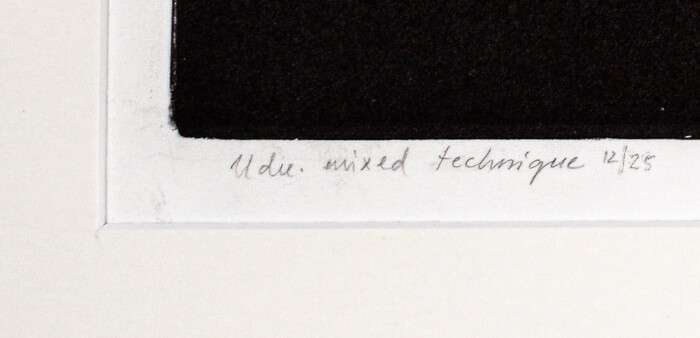 mixed technique 12/25